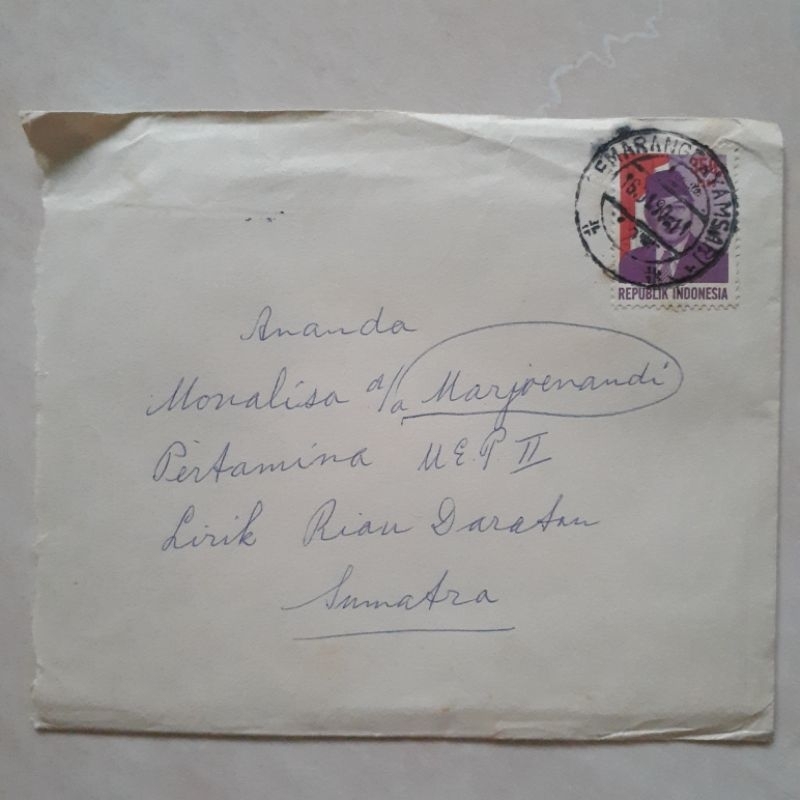 SEMARANG GAYAMSARI
REPUBLIK INDONESIA
Ananda
Monalisa d/a Marjoenandi
Pertamina U.E.P. II
Lirik Riau Daratan
Sumatra